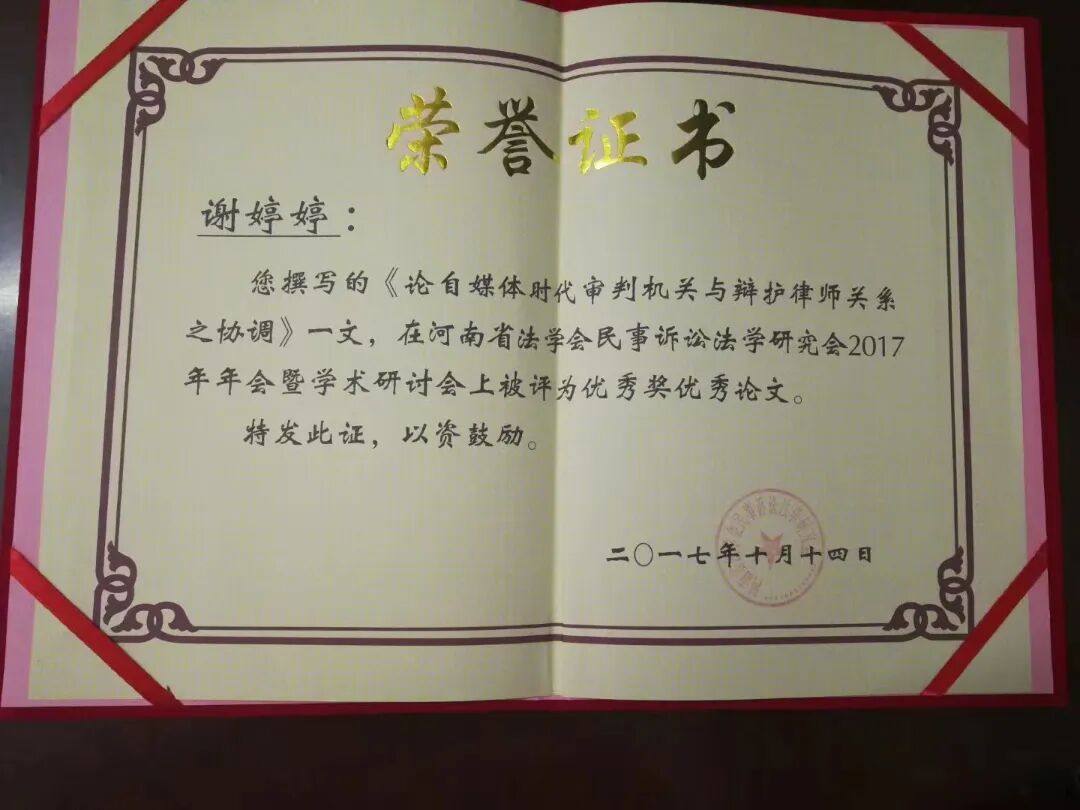 荣誉证书
谢婷婷：
您撰写的《论自媒体时代审判机关与辩护律师关系
之协调》一文，在河南省法学会民事诉讼法学研究会2017
年年会暨学术研讨会上被评为优秀奖优秀论文。
特发此证，以资鼓励。
二〇一七年十月十四日